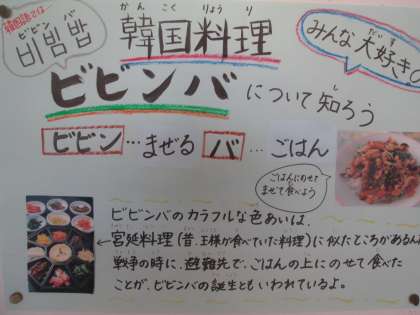 韓国語では
ビビン バ
비빔밥
かん こく りょう り
韓国料理
みんな大好き
ビビンバについて知ろう
ビビン…まぜる バ…ごはん
ごはんにのせて
まぜて食べよう
ビビンバのカラフルな色あいは、
宮廷料理(昔、王様が食べていた料理)に似たところがあるんだ
戦争の時に、避難先で、ごはんの上にのせて食べた
ことが、ビビンバの誕生ともいわれているよ。